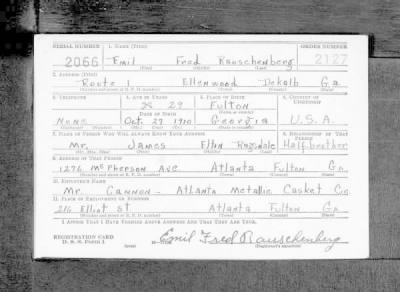 SERIAL NUMBER 1. NAME (Print) ORDER NUMBER
2066 Emil Fred Rauschenberg 2127
(First) (Middle) (Last)
2. ADDRESS (Print)
Route 1 Ellenwood Dekalb Ga
(Number and street or R. F. D. number) (Town) (County) (State)
3. TELEPHONE 4. AGE IN YEARS 5. PLACE OF BIRTH 6. COUNTRY OF CITIZENSHIP
28 29 Fulton
DATE OF BIRTH (Town or county)
None Oct. 29 1910 Georgia U.S.A.
(Mo.) (Day) (Yr.) (State or country)
7. NAME OF PERSON WHO WILL ALWAYS KNOW YOUR ADDRESS 8. RELATIONSHIP OF THAT PERSON
Mr. James Ragsdale Half brother
(Mr., Mrs., Miss) (First) (Middle) (Last)
9. ADDRESS OF THAT PERSON
1276 McPherson Ave Atlanta Fulton Ga.
(Number and street or R. F. D. number) (Town) (County) (State)
10. EMPLOYER'S NAME
Mr. Cannon - Atlanta Metallic Casket Co
11. PLACE OF EMPLOYMENT OR BUSINESS
216 Elliot St Atlanta Fulton Ga
(Number and street or R. F. D. number) (Town) (County) (State)
I AFFIRM THAT I HAVE VERIFIED ABOVE ANSWERS AND THAT THEY ARE TRUE.
REGISTRATION CARD
D. S. S. FORM 1 Emil Fred Rauschenberg
(Registrant's signature)